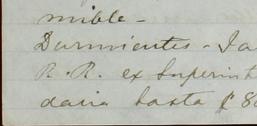 mible-
Durmientes - Ja
R.R. ex Superint
daria hasta $ 80